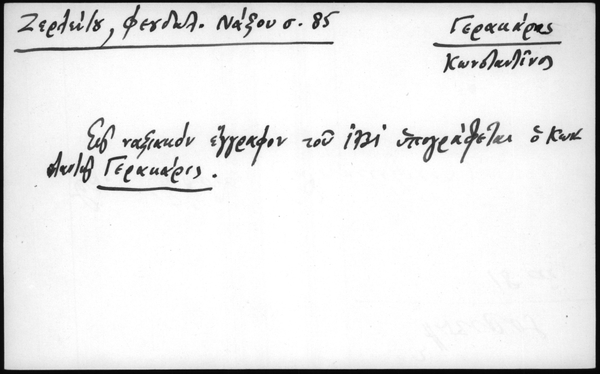 Ζερλέντου, Φεουδαλ. Νάξου σ. 85
Γερακάρης
Κωνσταντῖνος
Εἰς ναξιακόν ἔγγραφον τοῦ ὑπογράφεται ὁ Κων
σταντῖς Γερακάρις.